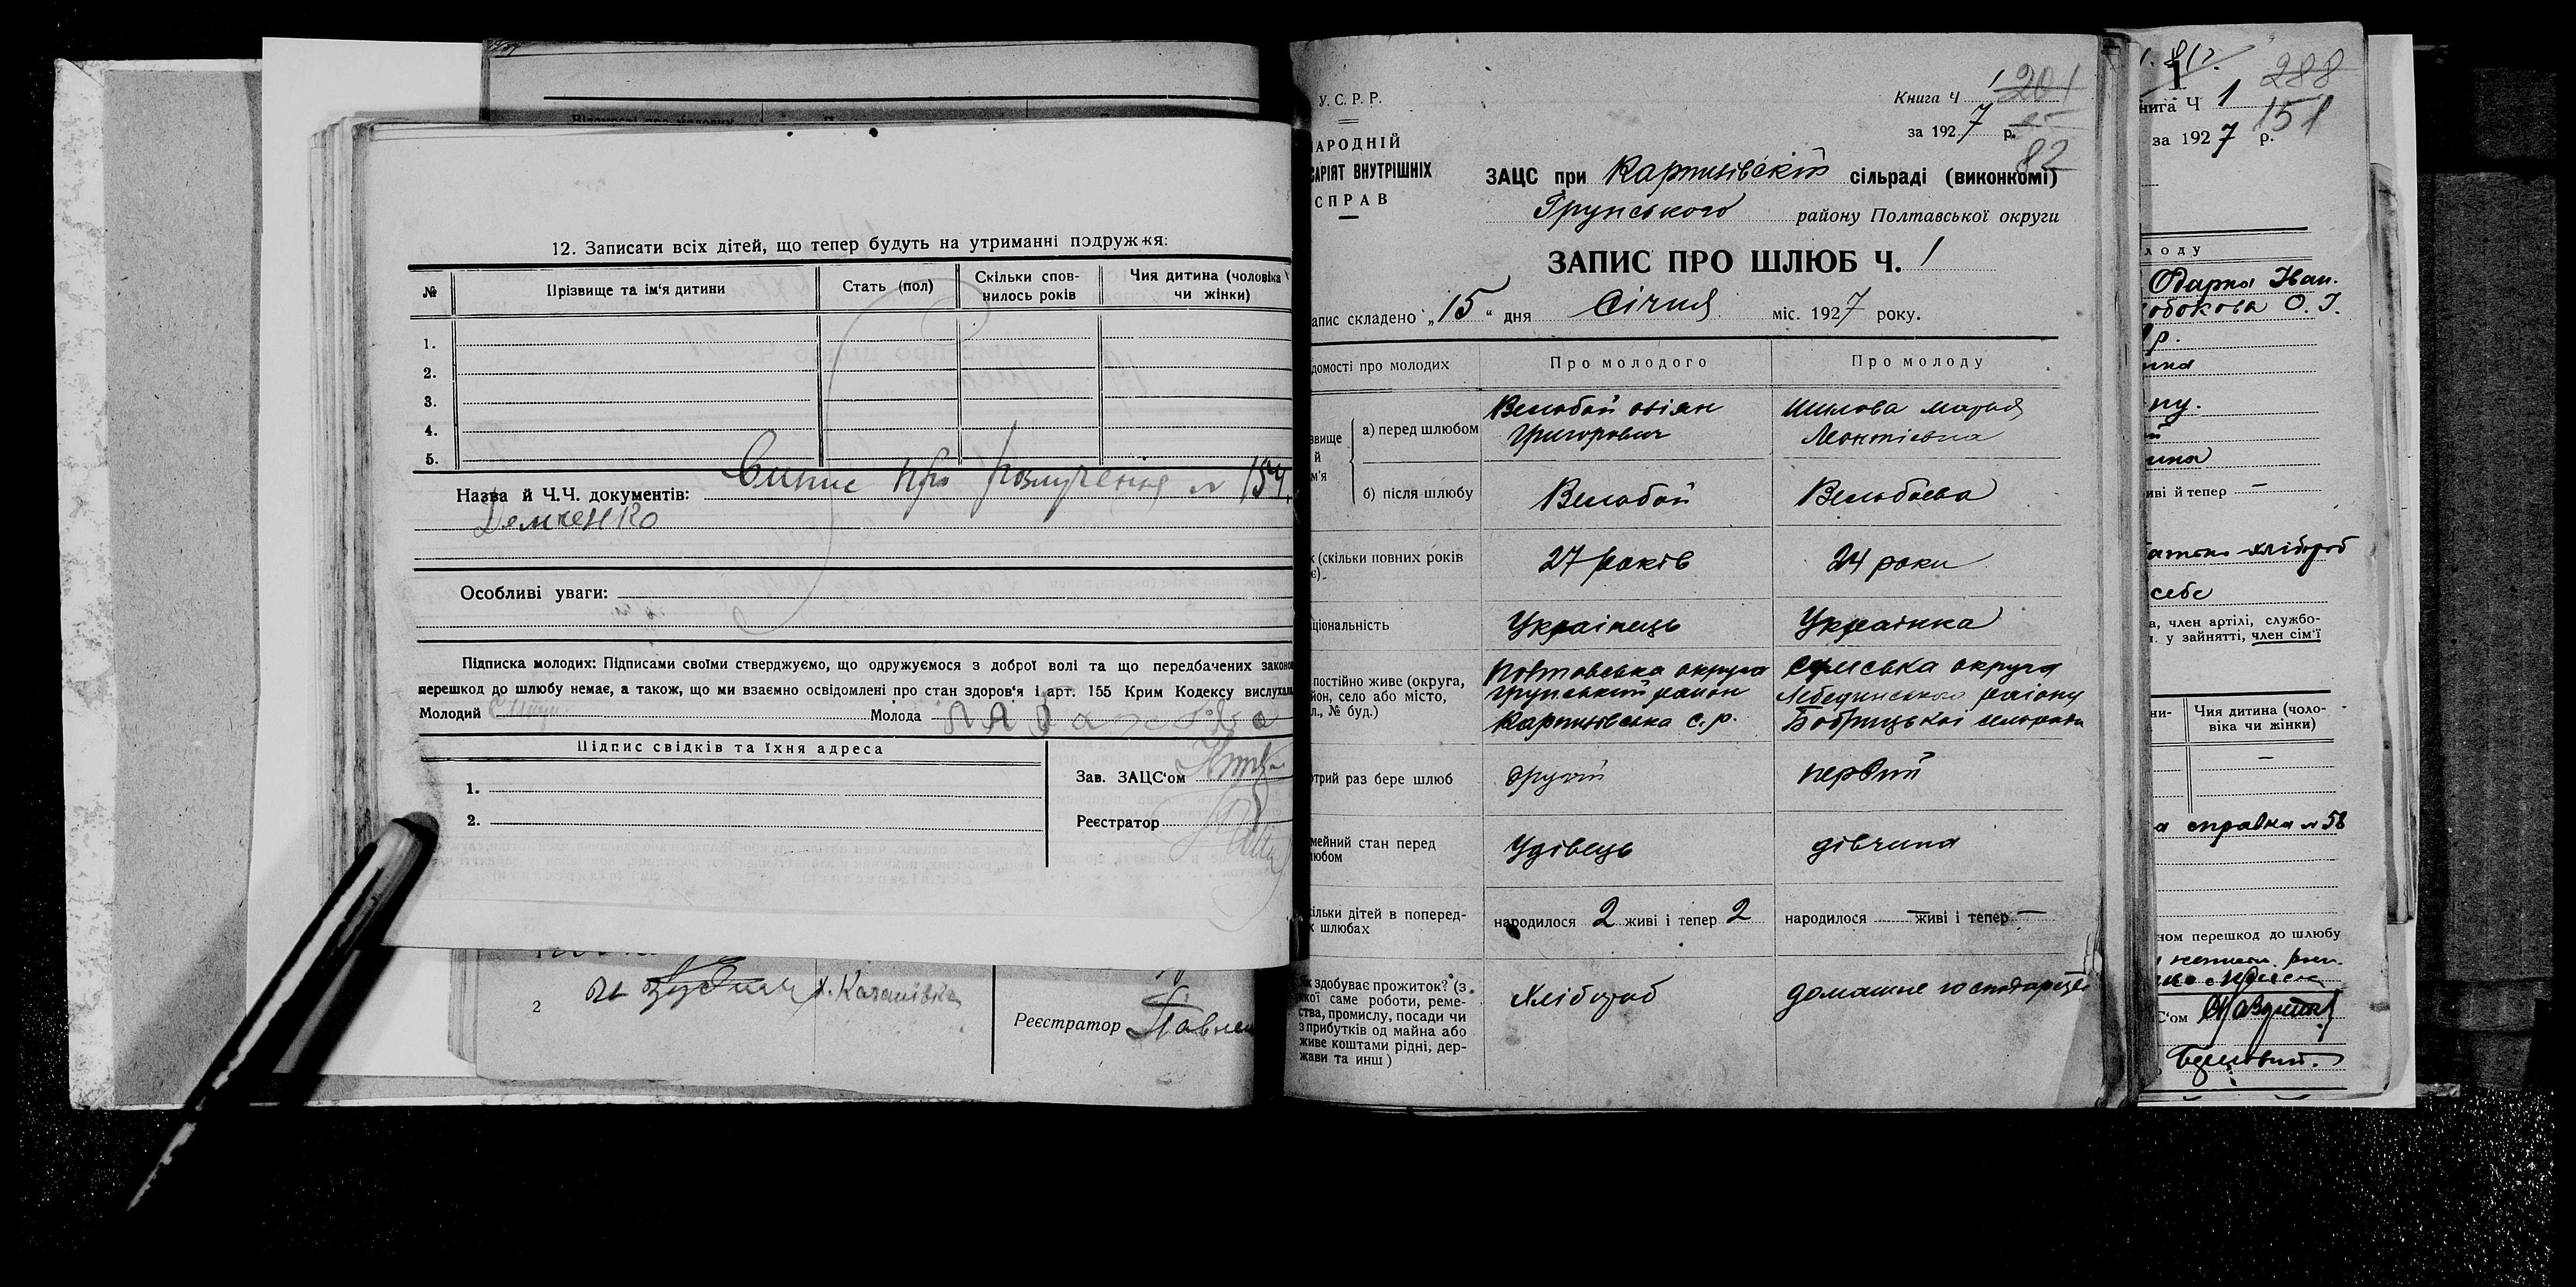 12. Записати всіх дітей, що тепер будуть на утриманні подружжя:
№ Прізвище та ім'я дитини Стать (пол) Скільки спов-нилось років Чия дитина (чоловіка чи жінки)
1.
2.
3.
4.
5.
Назва й Ч.Ч. документів: Випис про розлучення № 154
Демченко
Особливі уваги:
Підписка молодих: Підписами своїми стверджуємо, що одружуємося з доброї волі та що передбачених законо
перешкод до шлюбу немає, а також, що ми взаємно освідомлені про стан здоров'я і арт. 155 Крим Кодексу вислухал
Молодий Молода
Підпис свідків та їхня адреса
Зав. ЗАЦС'ом
1.
2.
Реєстратор
2 х. Качанівка
Реєстратор
У. С. Р. Р.
АРОДНІЙ
САРІЯТ ВНУТРІШНІХ
СПРАВ
Книга Ч 1 201
за 1927 р.
82
ЗАЦС при Карпилівскій сільраді (виконкомі)
Грунського району Полтавської округи
ЗАПИС ПРО ШЛЮБ Ч. 1
апис складено „15“ дня Січня міс. 1927 року.
домості про молодих Про молодого Про молоду
звище й м'я
а) перед шлюбом
Григорович
Шилова Мария
Леонтіевна
б) після шлюбу
к (скільки повних років
є)
27 років
24 роки
ціональність Українець Українка
постійно живе (округа,
йон, село або місто,
л., № буд.)
Полтавська округа
Грунський район
Карпилівська с.р.
Сумська округа
Лебединського району
Бобрицької сельради
отрий раз бере шлюб другий первий
мейний стан перед
любом
Удівець
дівчина
кільки дітей в поперед-
х шлюбах
народилося 2 живі і тепер 2
народилося — живі і тепер —
Як здобуває прожиток? (з
якої саме роботи, реме-
ства, промислу, посади чи
з прибутків од майна або
живе коштами рідні, дер-
жави та инш)
Хлібороб
домашне господарство
288
нига Ч 1
151
за 1927 р.
лоду
Одарка Іван.
обокова О. І.
р.
иві й тепер —
хлібороб
себе
а, член артілі, службо-
. у зайнятті, член сім'ї
ни-
Чия дитина (чоло-
віка чи жінки)
—
справка № 58
ном перешкод до шлюбу
С'ом